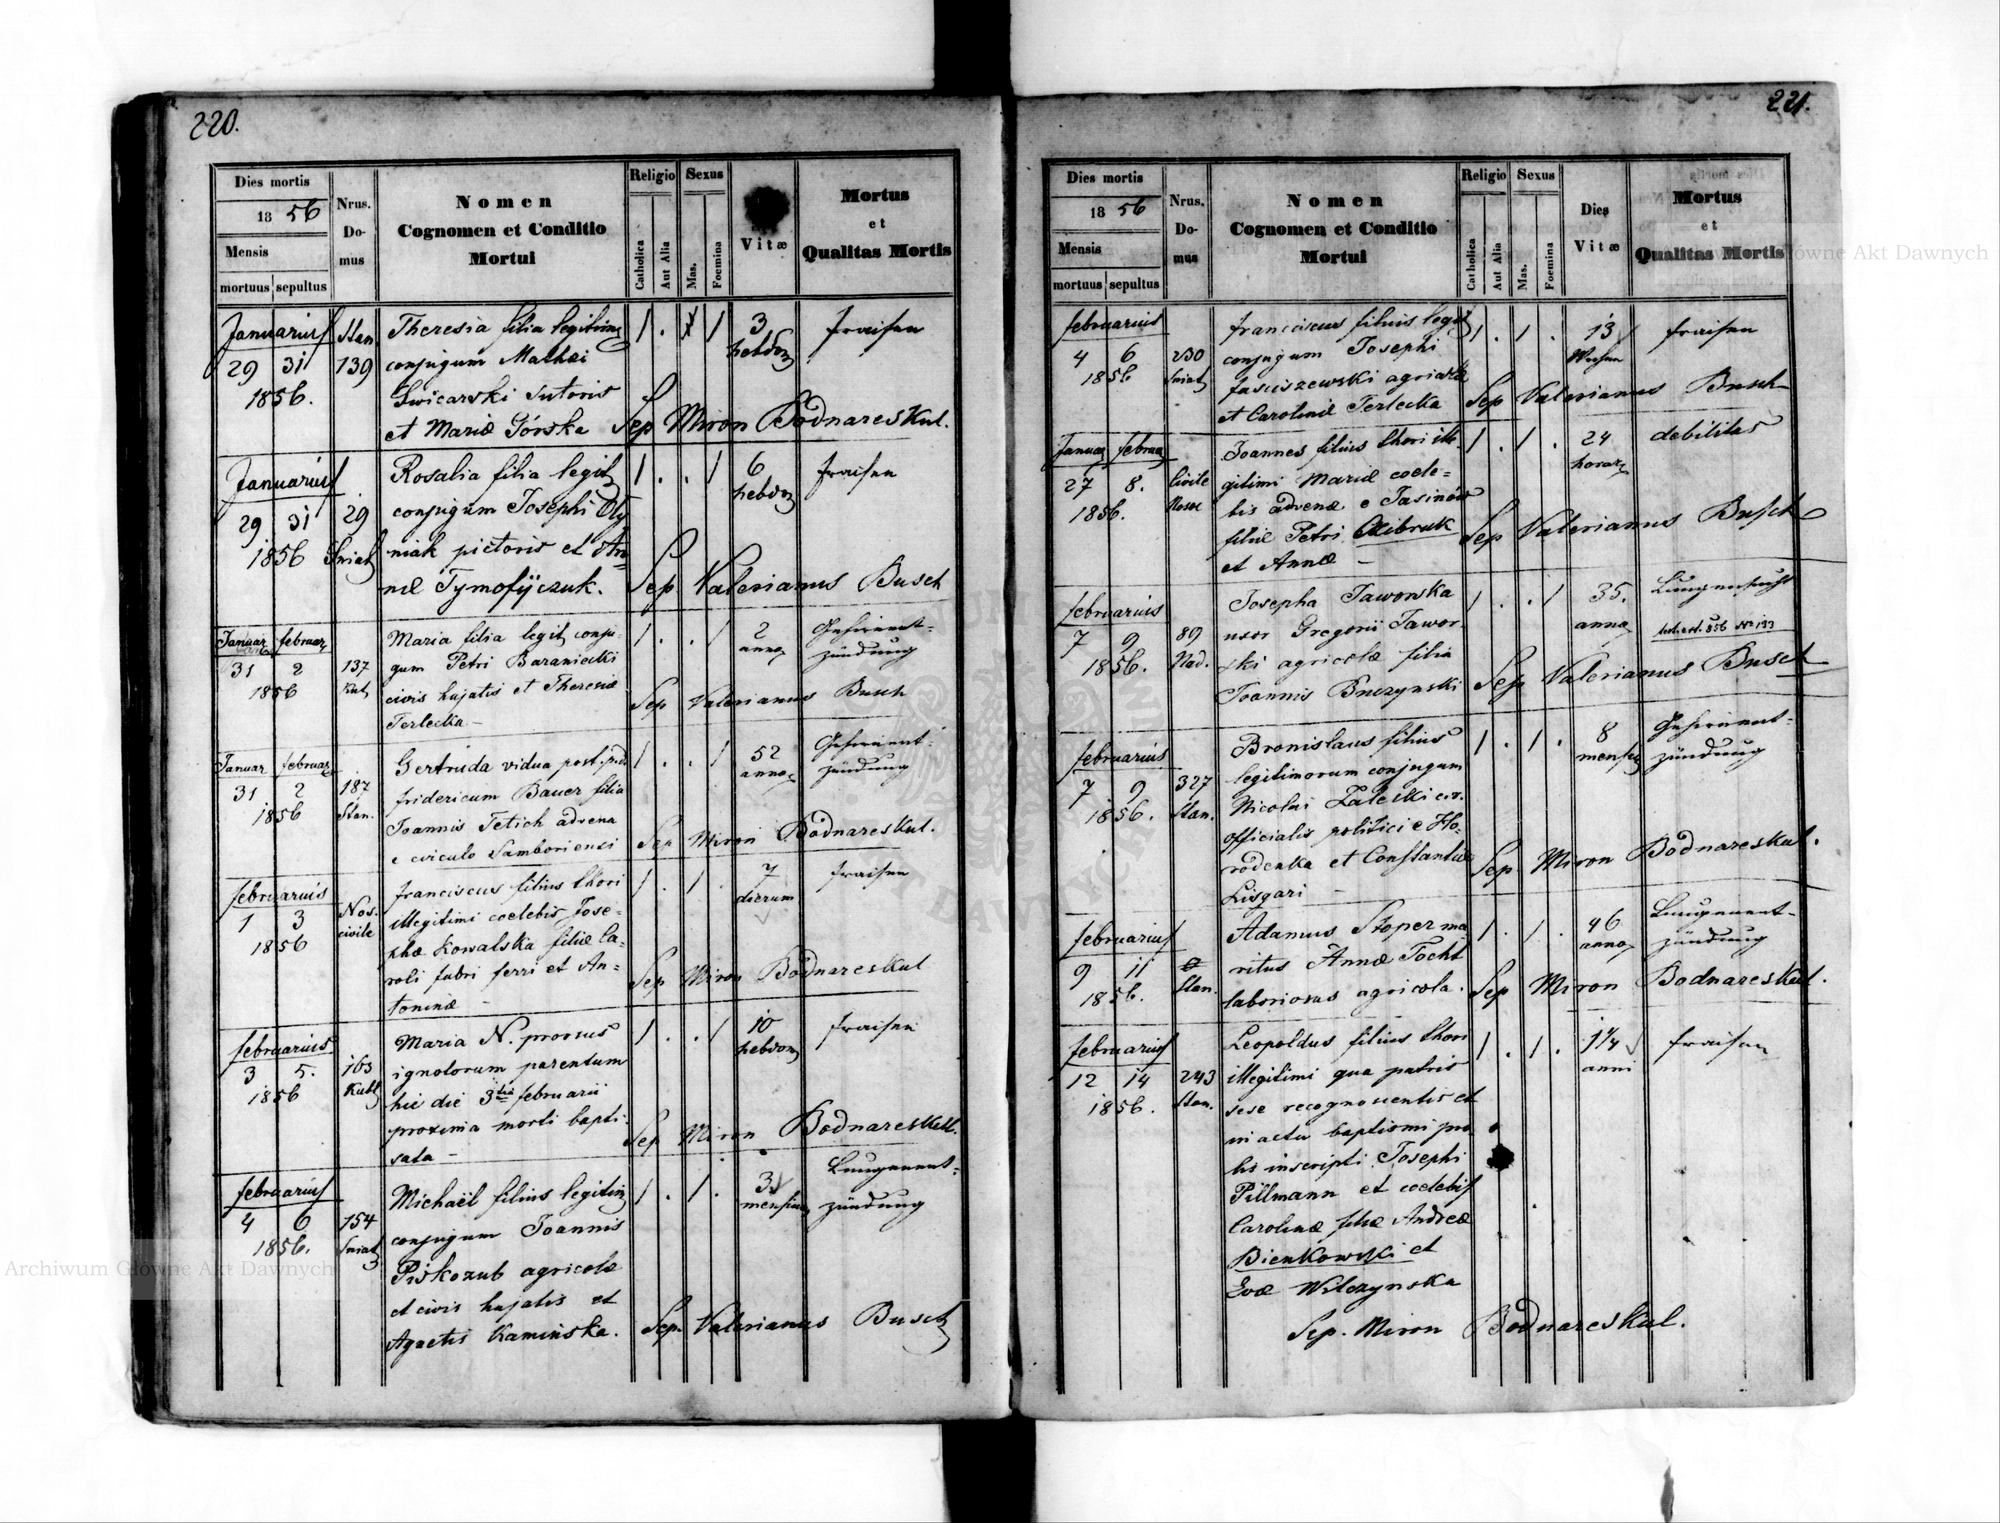 220.
Dies mortis
18 56
Mensis
mortuus sepultus
Nrus. Domus
Nomen
Cognomen et Conditio
Mortui
Religio
Catholica
Aut Alia
Sexus
Mas.
Foemina
Vitæ
Mortus
et
Qualitas Mortis
Januarius Stan Theresia filia legitima 1 . 1 3 fraisen
29 31 139 conjugum Mathæi hebdom
1856. Gwicarski sutoris
et Mariæ Górska Sep Miron Bodnareskul.
Januarius Rosalia filia legit 1 . . 1 6 fraisen
29 31 29 conjugum Josephi Oly hebdom
1856 Sniat niak pictoris et An=
næ Tymofijczuk. Sep Valerianus Busch
Januar februar Maria filia legit conju- 1 . . 1 2 Gehirnent=
31 2 137 gum Petri Baraniecki anno zündung
1856 Kut civis hujatis et Theresiæ Sep Valerianus Busch
Terlecka —
Januar februar Gertruda vidua post 1 . . 1 52 Gehirnent-
31 2 187 fridericum Bauer filia anno zündung
1856 Stan. Joannis Tetich advena
e circulo Samboriensi Sep Miron Bodnareskul.
februarius franciscus filius thori 1 . 1 . 7 fraisen
1 3 Nos. illegitimi coelebis Jose- dierum
1856 civile phæ Kowalska filiæ Ca-
roli fabri ferri et An= Sep Miron Bodnareskul
toninæ —
februarius Maria N. prorsus 1 . . 1 10 fraisen
3 5. 163 ignotorum parentum hebdom
1856 Kutt hic die 3tia februarii
proxima morti bapti- Sep Miron Bodnareskul.
sata —
februarius Michaël filius legitim 1 . 1 . 3 Lungenent=
4 6 154 conjugum Joannis mensium zündung
1856. Sniat Piskozub agricolæ
et civis hujatis et
Agnetis Kamińska. Sep. Valerianus Busch
221.
Dies mortis
18 56
Mensis
mortuus sepultus
Nrus. Domus
Nomen
Cognomen et Conditio
Mortui
Religio
Catholica
Aut Alia
Sexus
Mas.
Foemina
Dies
Vitæ
Mortus
et
Qualitas Mortis
februarius franciscus filius legit 1 . 1 . 13 fraisen
4 6 230 conjugum Josephi Wochen
1856 Sniat Jasciszewski agricolæ
et Carolinæ Terlecka Sep Valerianus Busch
Januar februar Joannes filius thori ille- 1 . 1 . 24 debilitas
27 8. Civile gitimi Mariæ coele- horar
1856. Nosoc bis advenæ e Jasinów
filiæ Petri
et Annæ — Sep Valerianus Busch
februarius Josepha Jaworska 1 . . 1 35. Lungensucht
7 9 89 uxor Gregorii Jawor- anno 856 No 133
1856. Nad. ski agricolæ filia
Joannis Buczynski Sep Valerianus Busch
februarius Bronislaus filius 1 . 1 . 8 Gehirnent-
7 9 327 legitimorum conjugum mensium zündung
1856. Stan. Nicolai Zaleski
officialis politici e Ho-
rodenka et Constantiæ
Lisgari — Sep Miron Bodnareskul.
februarius Adamus Stoper ma- 1 . 1 . 46 Lungenent-
9 11 ritus Annæ Tocht anno zündung
1856. Stan. laboriosus agricola. Sep Miron Bodnareskul.
februarius Leopoldus filius thori 1 . 1 . 1 1/4 fraisen
12 14 243 illegitimi qua patris anni
1856. Stan. sese recognoscentis et
in actu baptismi pro-
lis inscripti Josephi
Pillmann et coelebis
Carolinæ filiæ Andreæ
Bienkowski et
Evæ Wilczynska
Sep. Miron Bodnareskul.
Archiwum Główne Akt Dawnych
Główne Akt Dawnych